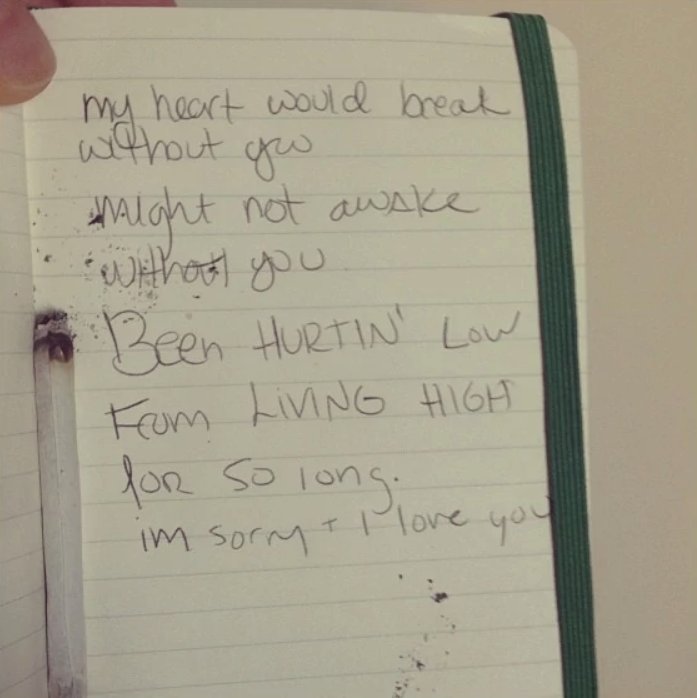 my heart would break
without you
might not awake
without you
Been HURTIN' LOW
From LIVING HIGH
for so long.
im sorry + I love you